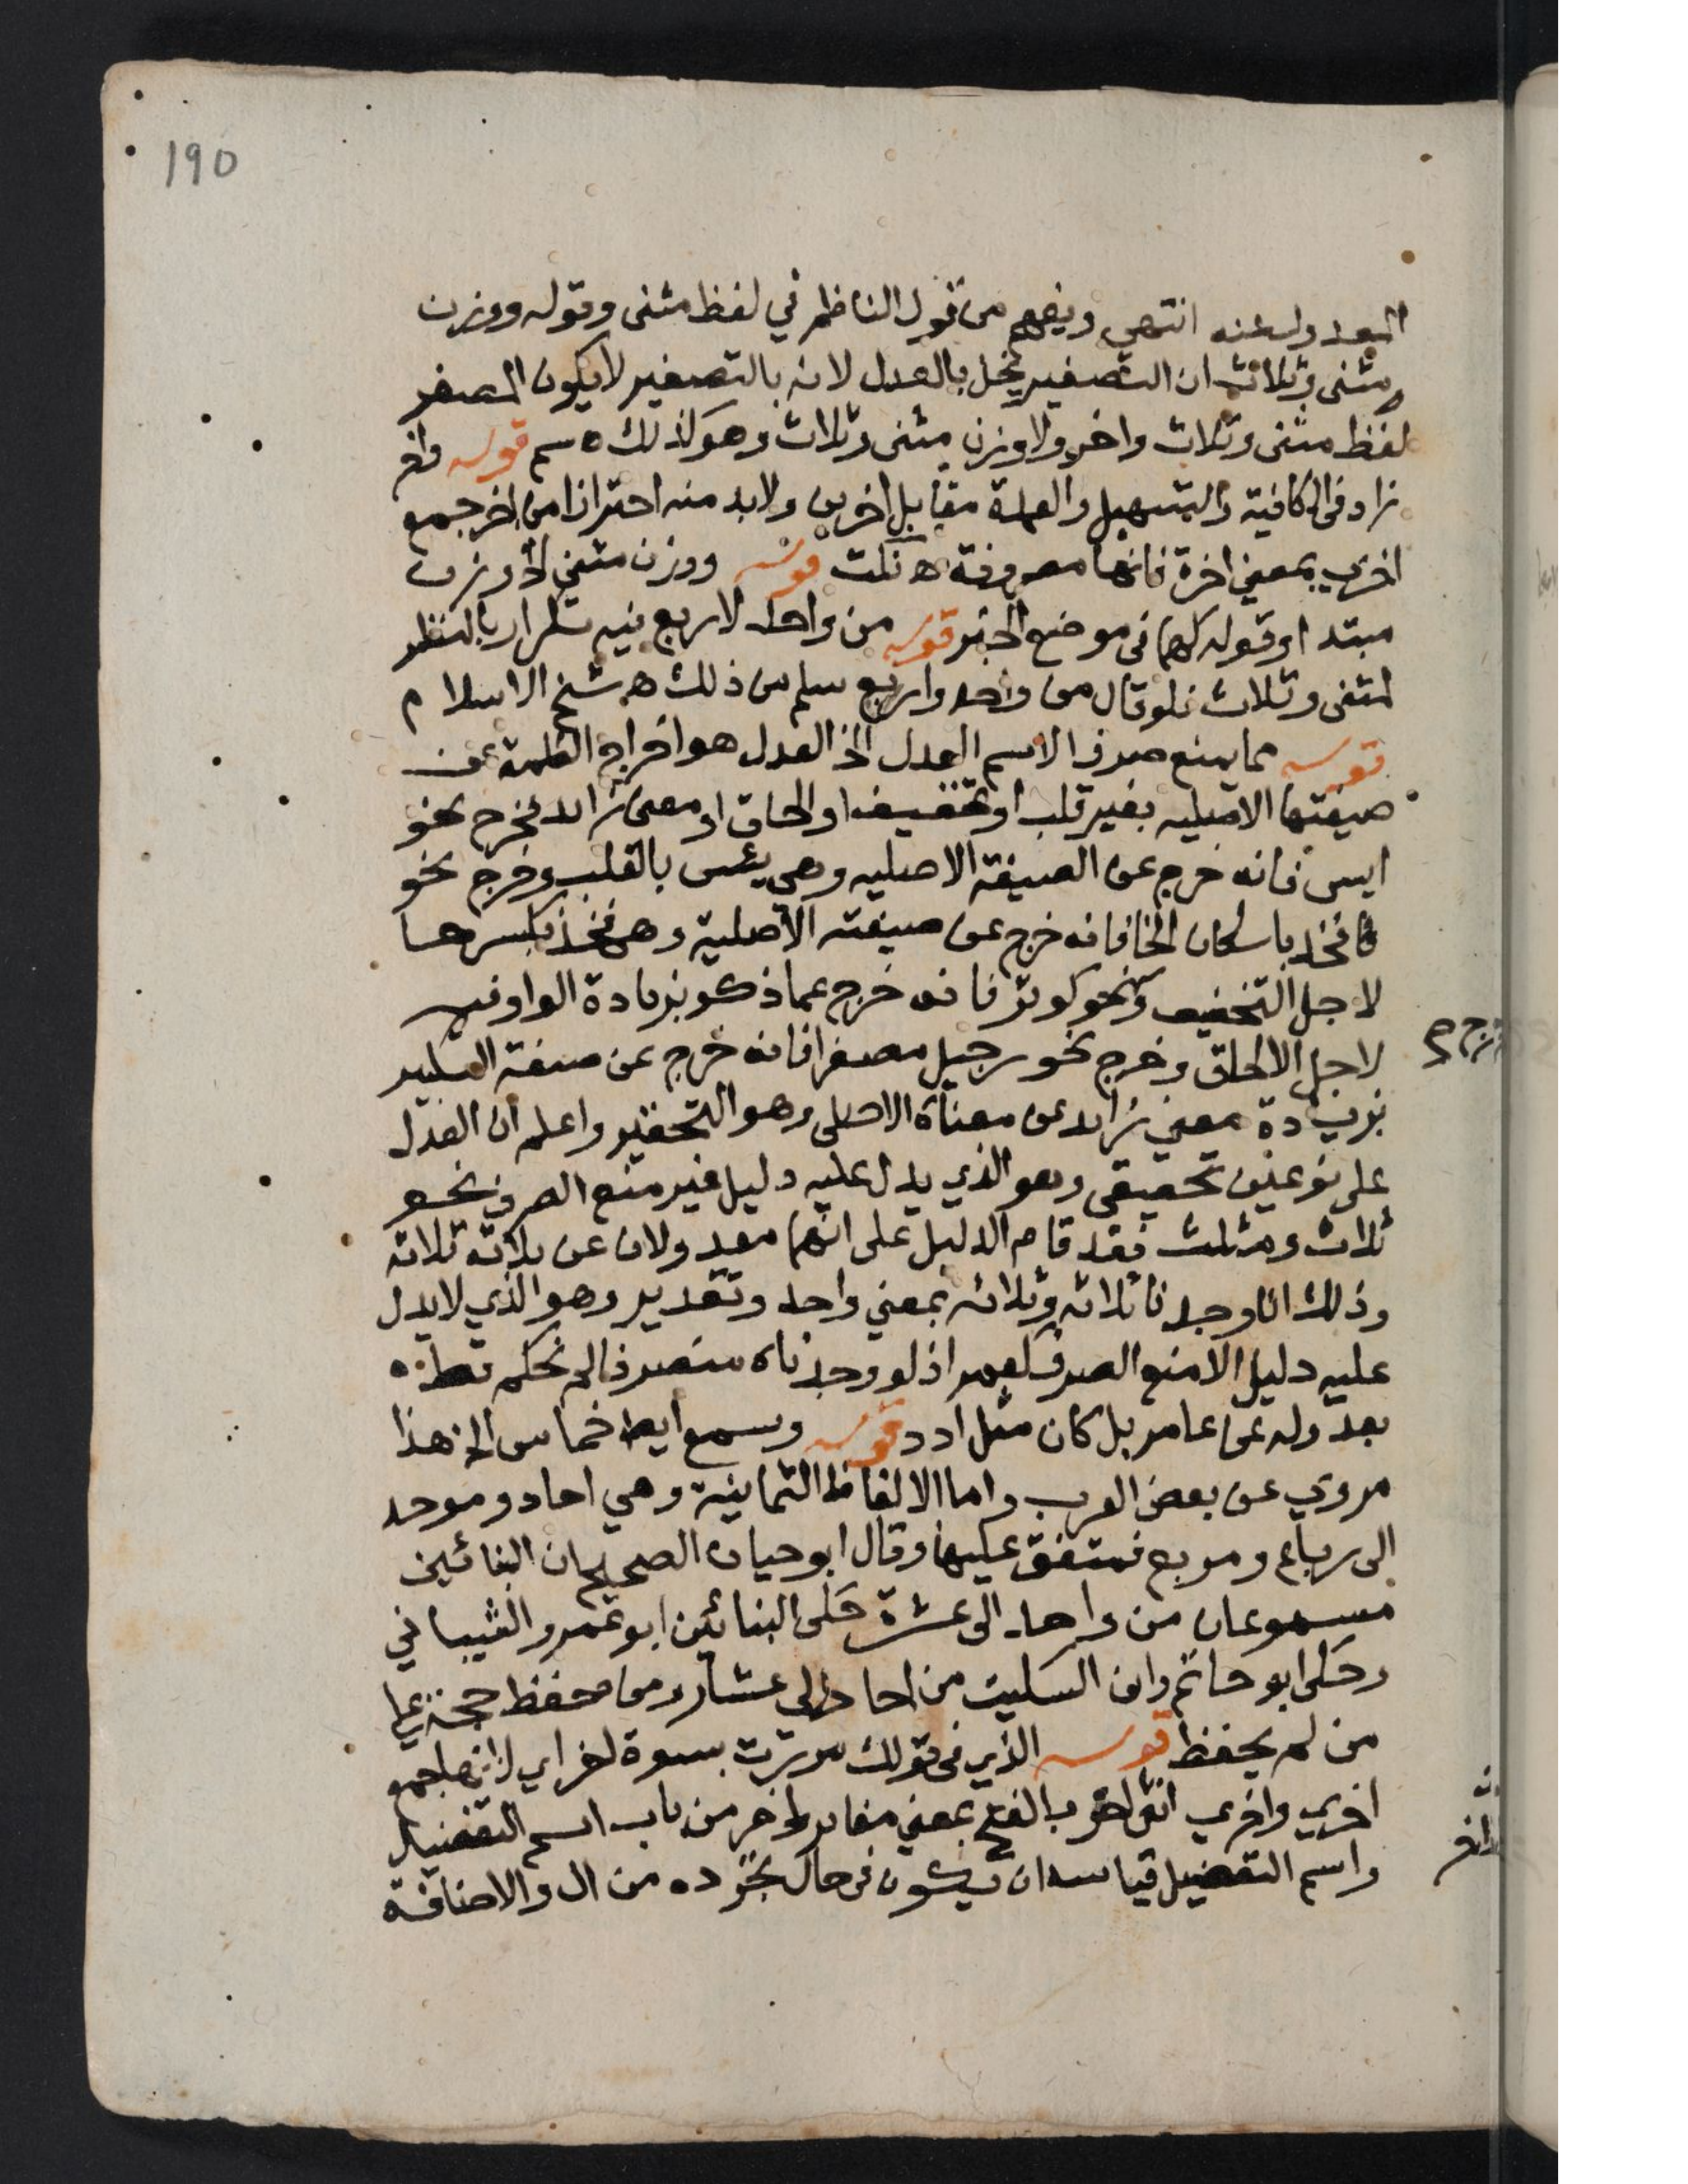 190
المعدول عنه انتهي ويفهم من قول الناظم في لفظ مثنى وقوله ووزن
مثنى وثلاث ان التصغير يخل بالعدل لانه بالتصغير لا يكون المصغر
لفظ مثنى وثلاث واخر ولا وزن مثنى وثلاث وهو كذلك ه سم قوله واخر
زاد في الكافية والتسهيل والعمدة مقابل اخرين ولا بد منه احترازا من اخر جمع
اخري بمعني اخرة فانها مصروفة ه نكت قوله ووزن مثني الخ وزن
مبتدا وقوله كهما في موضع الخبر قوله من واحد لاربع فيه تكرار بالنظر
لمثنى وثلاث فلو قال من واحد واربع سلم من ذلك ه شيخ الاسلام
قوله مما يمنع صرف الاسم العدل الخ العدل هو اخراج الكلمة عن
صيغتها الاصليه بغير قلب او تخفيف او الحاق او معنى زائد فخرج نحو
ايس فانه خرج عن الصيغة الاصليه وهي يئس بالقلب وخرج نحو
فخذ باسكان الخا فانه خرج عن صيغته الأصلية وهي فخذ بكسرها
لاجل التخفيف ونحو كوثر فانه خرج عما ذكر بزيادة الواو فيه
لاجل الالحاق وخرج نحو رجيل مصغرا فانه خرج عن صيغة التكبير
بزيادة معني زائد عن معناه الاصلي وهو التحقير واعلم ان العدل
على نوعين تحقيقي وهو الذي يدل عليه دليل غير منع الصرف نحو
ثلاث ومثلث فقد قام الدليل على انهما معدولان عن ثلاثة ثلاثة
وذلك انا وجدنا ثلاث وثلاثه بمعني واحد وتقدير وهو الذي لا يدل
عليه دليل الا منع الصرف كعمر اذ لو وجدناه منصرفا لم نحكم قط
بعدوله عن عامر بل كان مثل ادد قوله وسمع ايضا خماس الخ هذا
مروي عن بعض العرب واما الالفاظ الثمانية وهي احاد وموحد
الى رباع ومربع فمتفق عليها وقال ابو حيان الصحيح ان البنائين
مسموعان من واحد الى عشرة حكى البنائين ابو عمرو الشيباني
وحكى ابو حاتم وابن السكيت من احاد الى عشار ومن حفظ حجة على
من لم يحفظ قوله الذي في قولك مررت بنسوة اخر اي لانها جمع
اخري واخري انثى اخر بالفتح بمعني مغاير واخر من باب اسم التفضيل
واسم التفضيل قياسه ان يكون في حال تجرده من ال والاضافة